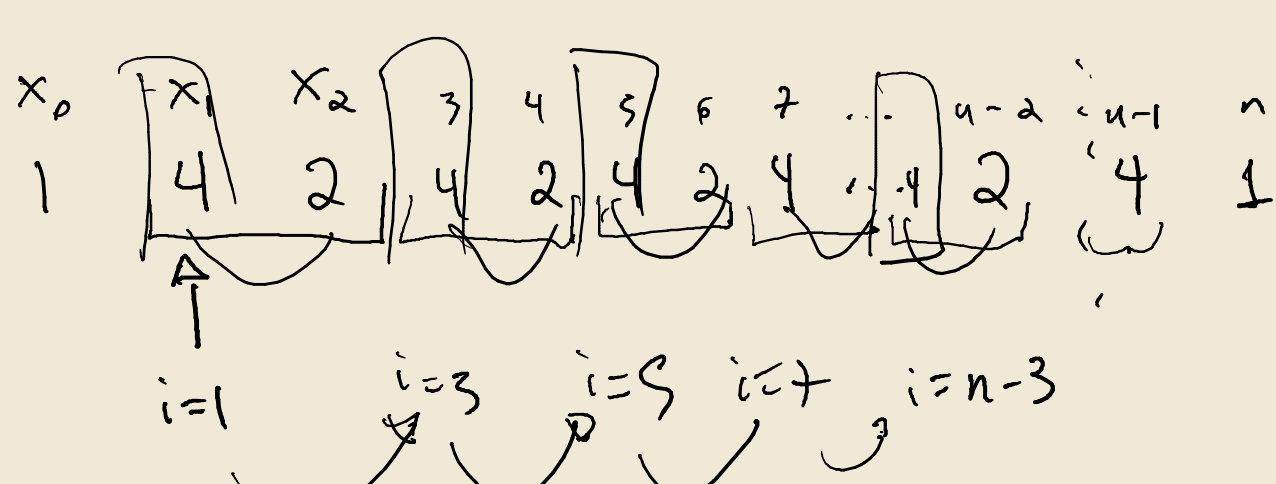 x₀ x₁ x₂ 3 4 5 6 7 ... n-2 n-1 n
1 4 2 4 2 4 2 4 ... 4 2 4 1
i=1 i=3 i=5 i=7 i=n-3